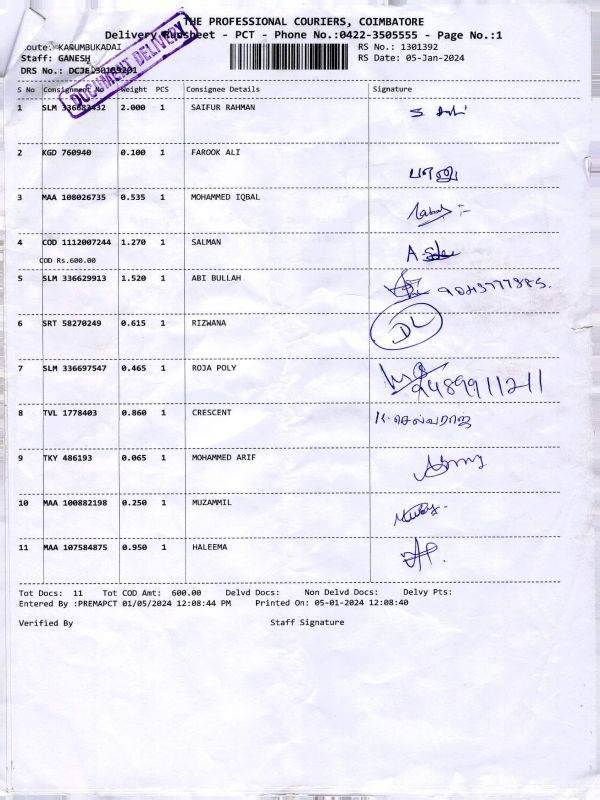 THE PROFESSIONAL COURIERS, COIMBATORE
Delivery Runsheet - PCT - Phone No.:0422-3505555 - Page No.:1
Route: KARUMBUKADAI RS No.: 1301392
Staff: GANESH RS Date: 05-Jan-2024
DRS No.:
DOCUMENT DELIVERY
S No Consignment No Weight PCS Consignee Details Signature
1 SLM 336683432 2.000 1 SAIFUR RAHMAN
2 KGD 760940 0.100 1 FAROOK ALI
பானு
3 MAA 108026735 0.535 1 MOHAMMED IQBAL
4 COD 1112007244 1.270 1 SALMAN
COD Rs.600.00
5 SLM 336629913 1.520 1 ABI BULLAH
6 SRT 58270249 0.615 1 RIZWANA
DL
7 SLM 336697547 0.465 1 ROJA POLY
9489911211
8 TVL 1778403 0.860 1 CRESCENT K. செல்வராஜ்
9 TKY 486193 0.065 1 MOHAMMED ARIF
10 MAA 100882198 0.250 1 MUZAMMIL
11 MAA 107584875 0.950 1 HALEEMA
Tot Docs: 11 Tot COD Amt: 600.00 Delvd Docs: Non Delvd Docs: Delvy Pts:
Entered By :PREMAPCT 01/05/2024 12:08:44 PM Printed On: 05-01-2024 12:08:40
Verified By Staff Signature